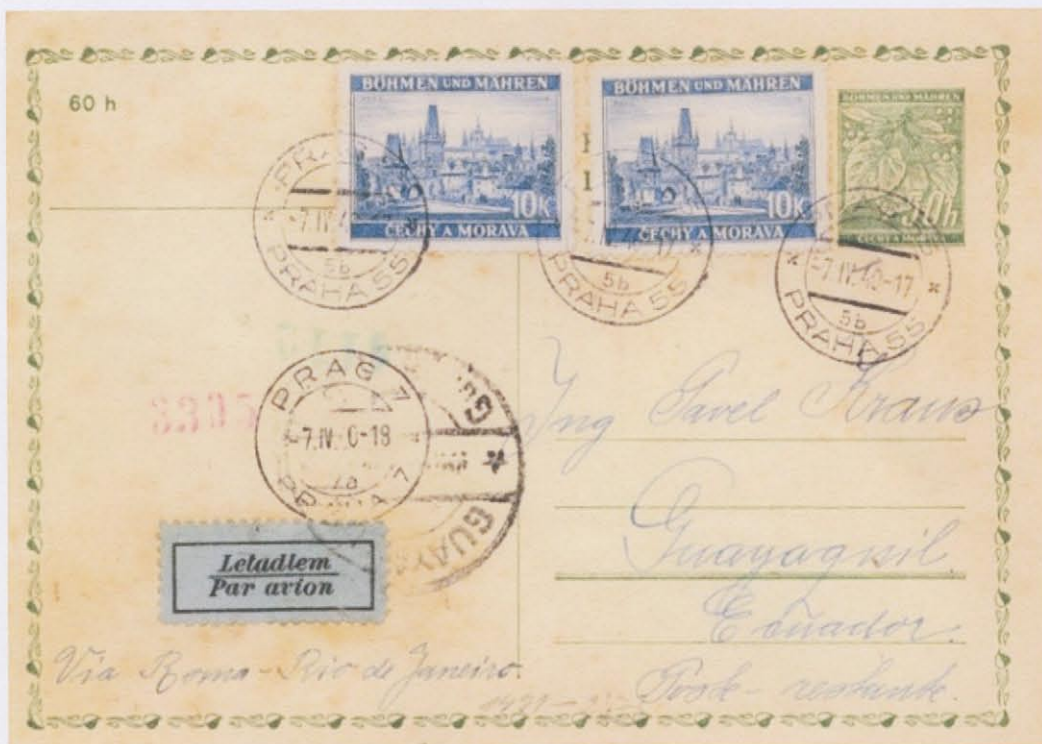 60 h
BÖHMEN UND MÄHREN
10K
ČECHY A MORAVA
BÖHMEN UND MÄHREN
10K
ČECHY A MORAVA
BÖHMEN UND MÄHREN
50h
ČECHY A MORAVA
-7.IV.4
5b
PRAHA 55
5b
PRAHA 55
-7.IV.40-17
5b
PRAHA 55
PRAG 7
-7.IV. 0-18
7a
PRAHA 7
GUAYA
Letadlem
Par avion
Ing Pavel Kraus
Guayaquil
Ecuador.
Poste-restante.
Via Roma-Rio de Janeiro.